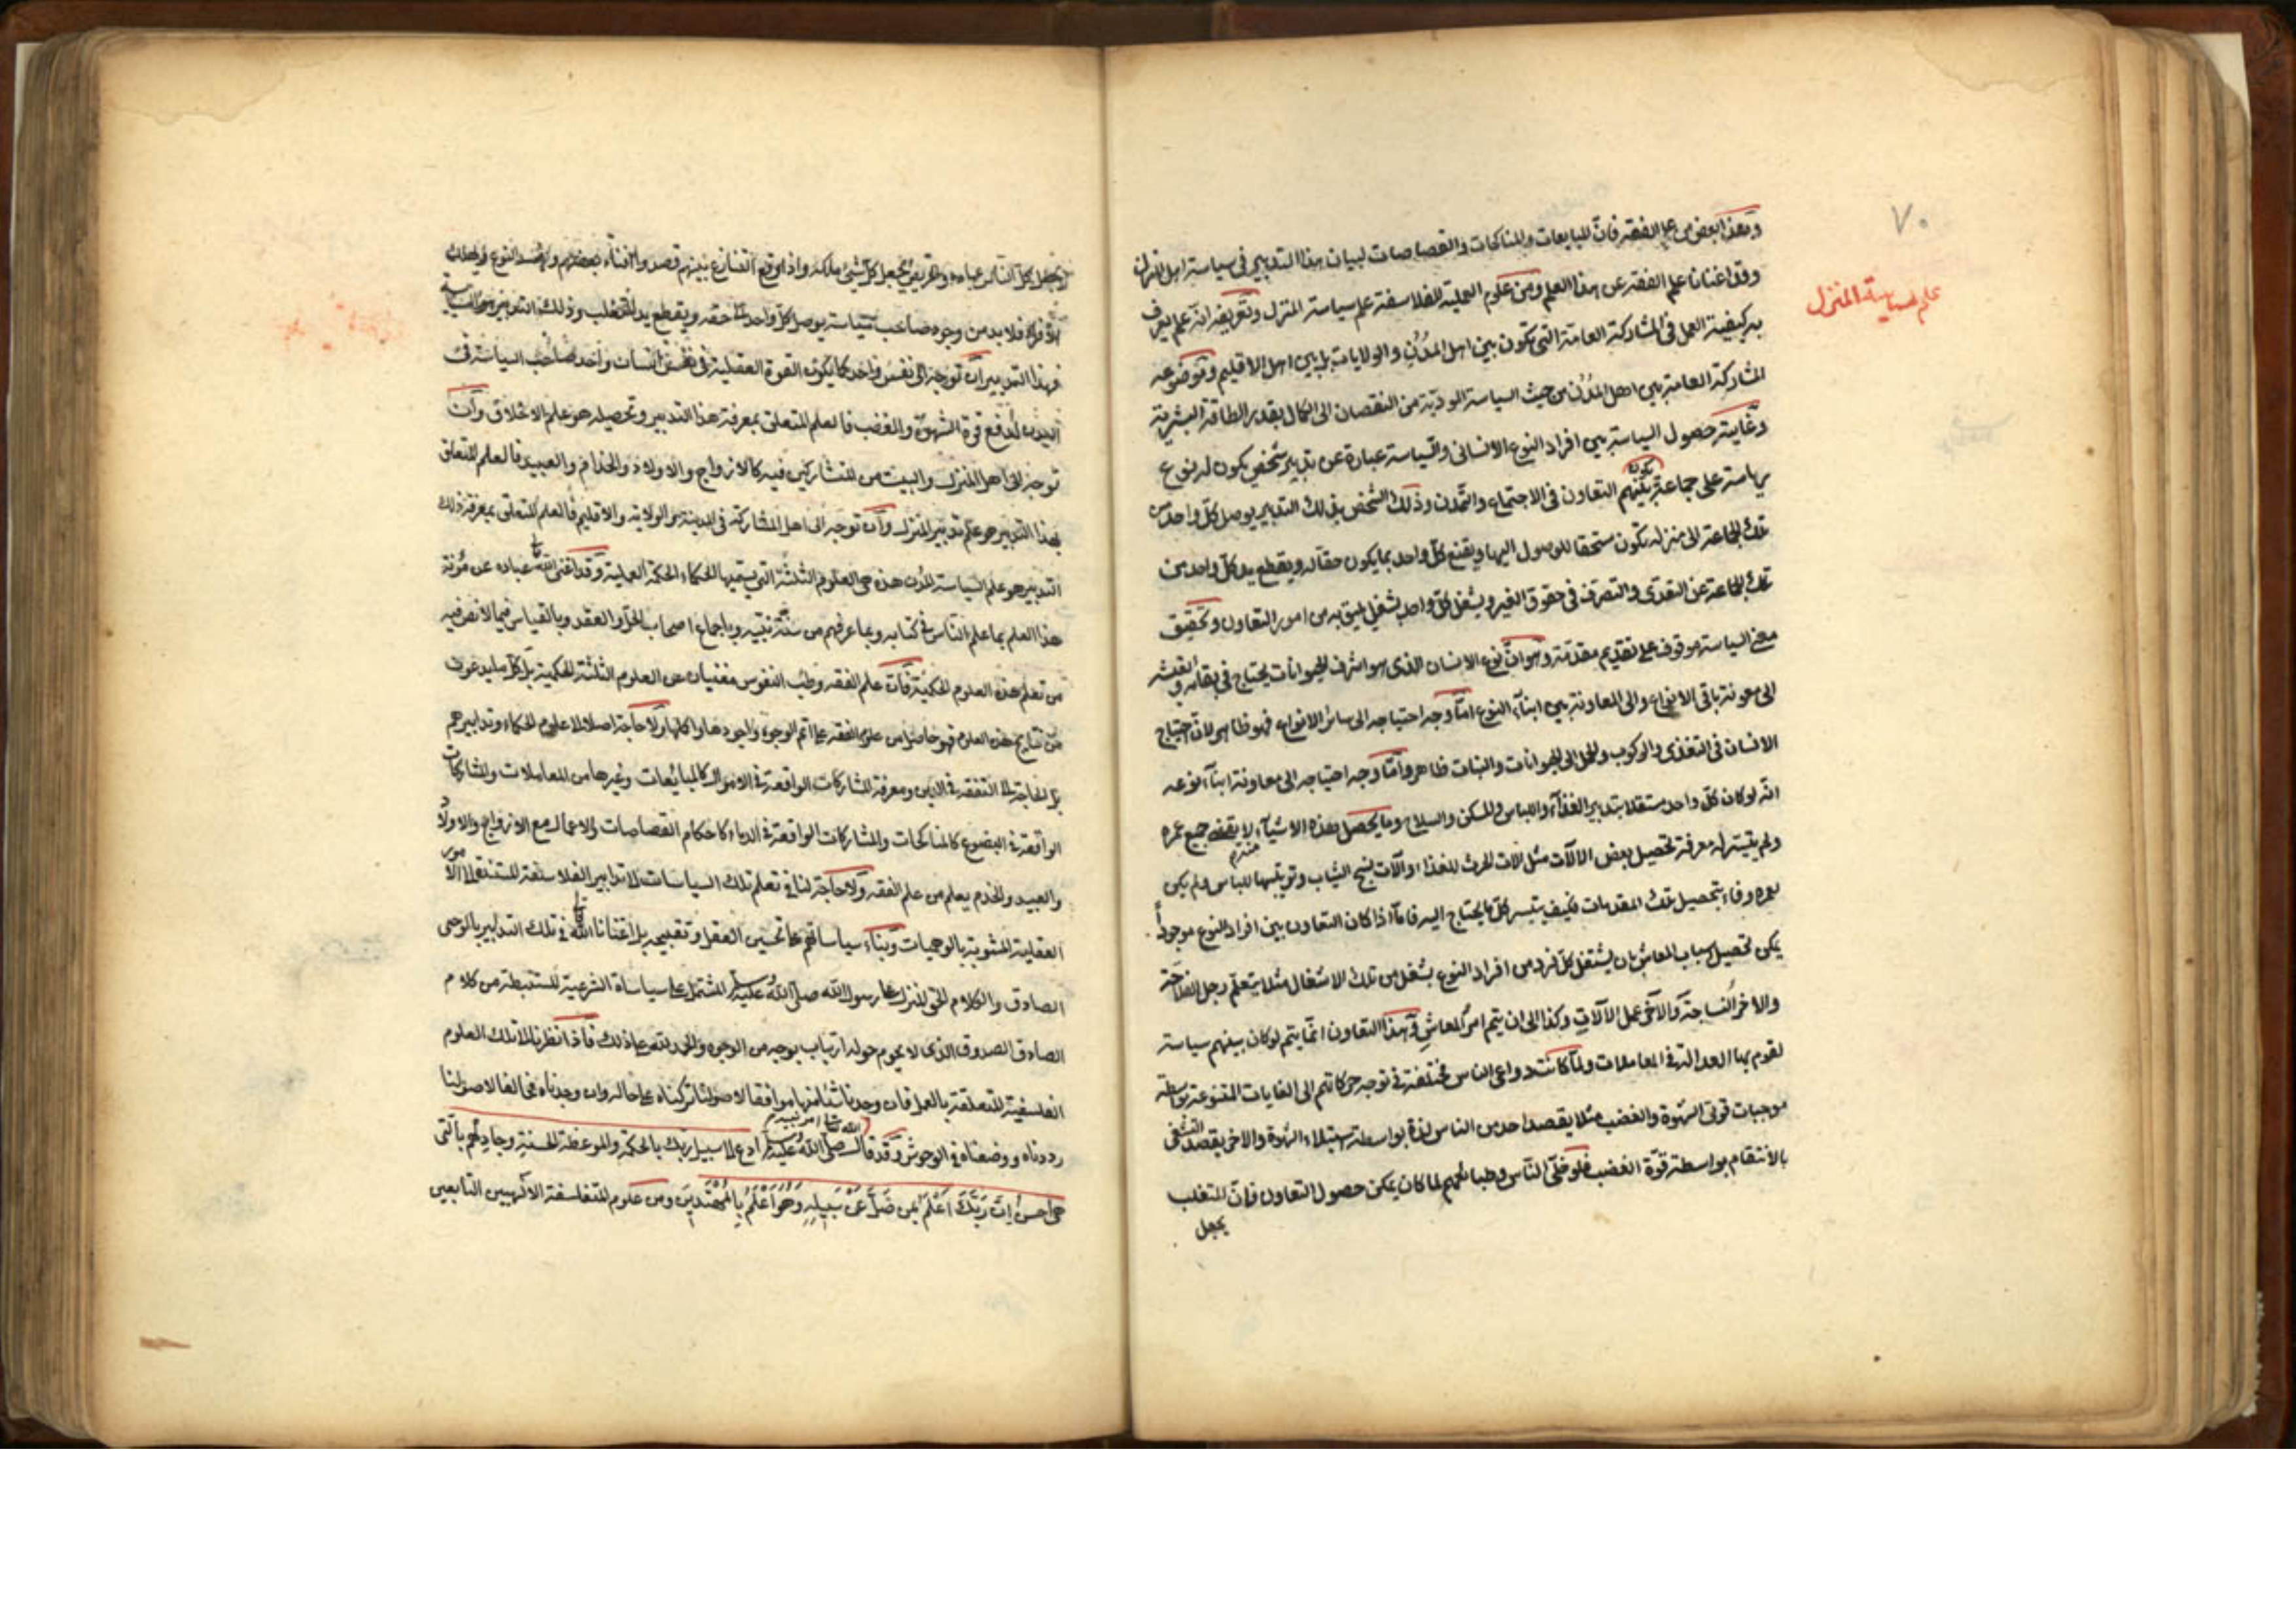 ٧٠
علم سياسة المنزل
وهذا بعض من علم الفقه فانّ المبايعات والمناكحات والقصاصات لبيان هذا التدبير في سياسة اهل المنزل
وقد اغنانا علم الفقه عن هذا العلم ومن علوم العملية للفلاسفة علم سياسة المنزل وتعريفه انه علم يعرف
به كيفية العمل في المشاركة العامة التي تكون بين اهل المدُن والولايات بل بين اهل الاقليم وموضوعه
المشاركة العامة بين اهل المدُن من حيث السياسة المودية من النقصان الى الكمال بقدر الطاقة البشرية
وغايته حصول السياسة بين افراد النوع الانساني والسياسة عبارة عن تدبير شخص يكون له نوع
رياسة على جماعة يكون بينهم التعاون في الاجتماع والتمدن وذلك الشخص بذلك التدبير يوصل كلّ واحد من
تلك الجماعة الى منزلة يكون مستحقا للوصول اليها ويقنع كلّ واحد بما يكون حقا له ويقطع يد كلّ واحد من
تلك الجماعة عن التعدّى والتصرف في حقوق الغير ويشغل كلّ واحد بشغل يليق به من امور التعاون وتحقيق
معنى السياسة موقوف على تقديم مقدمة وهو انّ نوع الانسان الذي هو اشرف الحيوانات يحتاج في بقائه وتعيشه
الى معونة باقي الانواع والى المعاونة بين ابنآء النوع امّا وجه احتياجه الى سائر الانواع فهو ظاهر لانّ احتياج
الانسان في التغذى والركوب والحمل الى الحيوانات والنبات ظاهر وامّا وجه احتياجه الى معاونة ابنآء نوعه
انّه لو كان كلّ واحد مستقلا بتدبير الغذآء واللباس والمسكن والسلاح وما يحصل بهذه الاشيآء لا يفى جميع عمره
ولم يتيسّر له معرفة تحصيل بعض الالات مثل الات الحرث للغذا او الآت نسج الثياب وترتيبها للباس ولم يكن
عمره وفاء بتحصيل تلك المقدمات فكيف يتيسر كلّ ما يحتاج اليه فامّا اذا كان التعاون بين افراد النوع موجوداً
يمكن تحصيل اسباب المعاش بان يشتغل كلّ فرد من افراد النوع بشغل من تلك الاشغال مثلا يتعلّم رجل الفلاحة
والاخر النساجة والآخر عمل الآلات وكذا الى ان يتم امر المعاش وهذا التعاون انّما يتم لو كان بينهم سياسة
تقوم بها العدالة في المعاملات ولمّا كانت دواعى الناس مختلفة في توجه حركاتهم الى الغايات المتنوعة بواسطة
موجبات قوتى الشهوة والغضب مثلا يقصد احد من الناس لذة بواسطة استيلاء الشهوة والاخر يقصد التشفى
بالانتقام بواسطة قوّة الغضب فلو خلّى النّاس وطبائعهم لما كان يمكن حصول التعاون فانّ المتغلب
يجعل
يجعل كل الناس عباده والحريص يجعل كلّ شئ ملكه واذا وقع التنازع بينهم قصدوا افناء بعضهم
الافراد فلا بد من وجود صاحب سياسة يوصل كلّ واحد الى حقه ويقطع يد المتغلب وذلك التدبير هو السياسة
فهذا التدبير ان توجه الى نفس واحد كما يكون القوة العقلية في نفس انسان واحد صاحب السياسة في
البدن لدفع قوة الشهوة والغضب فالعلم المتعلق بمعرفة هذا التدبير وتحصيله هو علم الاخلاق وان
توجه الى اهل المنزل والبيت من المتشاركين فيه كالازواج والاولاد والخدام والعبيد فالعلم المتعلق
بهذا التدبير هو علم تدبير المنزل وان توجه الى اهل المشاركة في المدينة او الولاية والاقليم فالعلم المتعلق بمعرفة ذلك
التدبير هو علم السياسة المدن هذه هى العلوم الثلثة التي يسميها الحكماء الحكمة العملية وقد اغنى الله تعالى عباده عن مؤنة
هذا العلم بما علم الناس في كتابه وبما عرفهم من سنّة نبيّه وباجماع اصحاب الحلّ والعقد وبالقياس فيما لا نص فيه
من تعلم هذه العلوم الحكمية فان علم الفقه وطب النفوس مغنيان عن العلوم الثلثة الحكمية بل كل ما يدعون
من نتايج هذه العلوم فهو حاصل من علوم الفقه على اتم الوجوه واجودها واكملها ولا حاجة اصلا الى علوم الحكماء وتدابيرهم
بل الحاجة الى التفقه في الدين ومعرفة المشاركات الواقعة في الاموال كالمبايعات وغيرها من المعاملات والمشاركات
الواقعة في البضوع كالمناكحات والمشاركات الواقعة في الدماء كاحكام القصاصات والاعمال مع الازواج والاولاد
والعبيد والخدم يعلم من علم الفقه ولا حاجة لنا في تعلم تلك السياسات الى تدابير الفلاسفة المستندة الى الامور
العقلية المشوبة بالوهميات وبناء سياساتهم على تحسين العقل وتقبيحه بل اغنانا الله تعالى في تلك التدابير بالوحى
الصادق والكلام الحق المنزل على رسول الله صلى الله عليه وسلم المشتمل على سياسات الشرعية المستنبطة من كلام
الصادق الصدوق الذى لا يحوم حوله ارتياب بوجه من الوجوه والحمد لله على ذلك فاذا نظرنا الى تلك العلوم
الفلسفية المتعلقة بالعمل فان وجدنا شيئا منها موافقا لاصولنا تركناه على حاله وان وجدناه مخالفا لاصولنا
رددناه ووضعناه في الوحوش وقد قال الله تعالى امرا نبيه صلى الله عليه وسلم ادع الى سبيل ربك بالحكمة والموعظة الحسنة وجادلهم بالتى
هى احسن اِنَّ رَبَّكَ اَعْلَمُ بِمن ضَلَّ عَنْ سَبِيلِهِ وَهُوَ اَعْلَمُ بِالْمُهْتَدِينَ ومن علوم المتفلسفة الالهيين التابعين